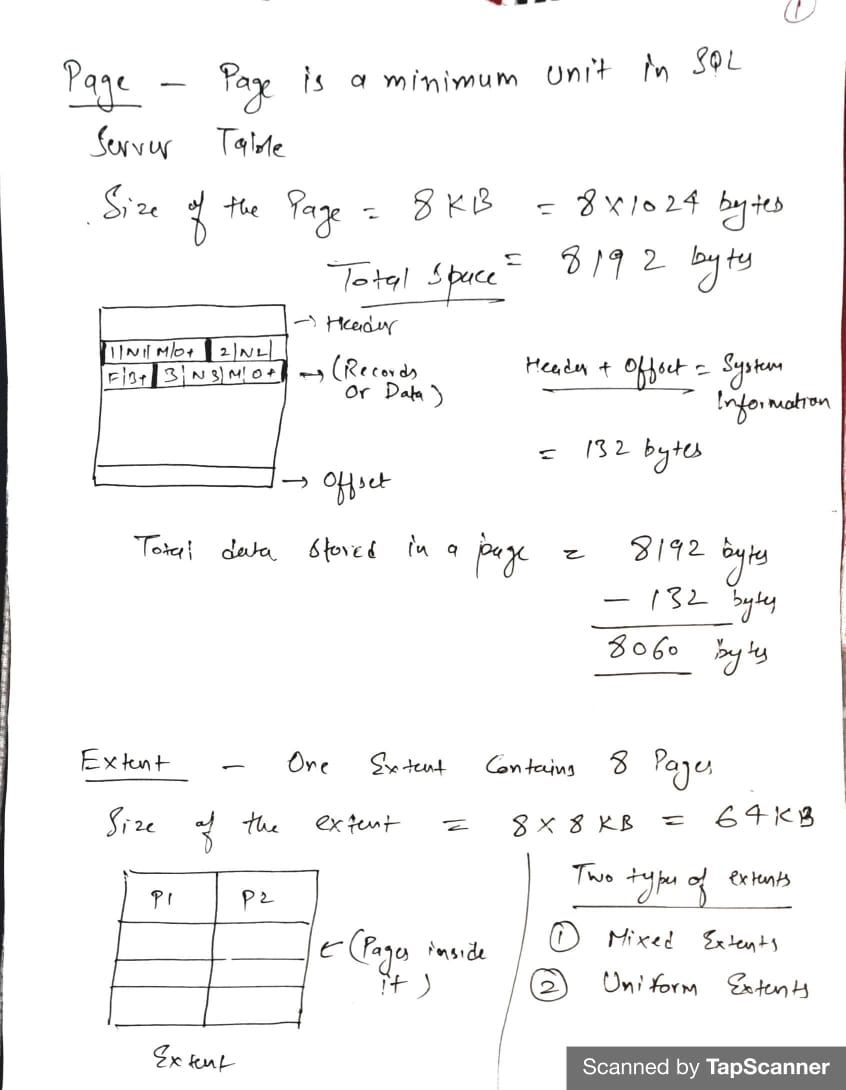 1
Page - Page is a minimum unit in SQL
Server Table
Size of the Page = 8 KB = 8 X 1024 bytes
Total Space = 8192 bytes
→ Header
1|N1|M|0+ 2|N2|
F|3+ 3|N3|M|0+ → (Records
or Data)
Header + Offset = System
Information
= 132 bytes
→ Offset
Total data stored in a page = 8192 bytes
- 132 bytes
8060 bytes
Extent - One Extent Contains 8 Pages
Size of the extent = 8 X 8 KB = 64 KB
P1 P2
← (Pages inside
it)
Extent
Two types of extents
① Mixed Extents
② Uniform Extents
Scanned by TapScanner